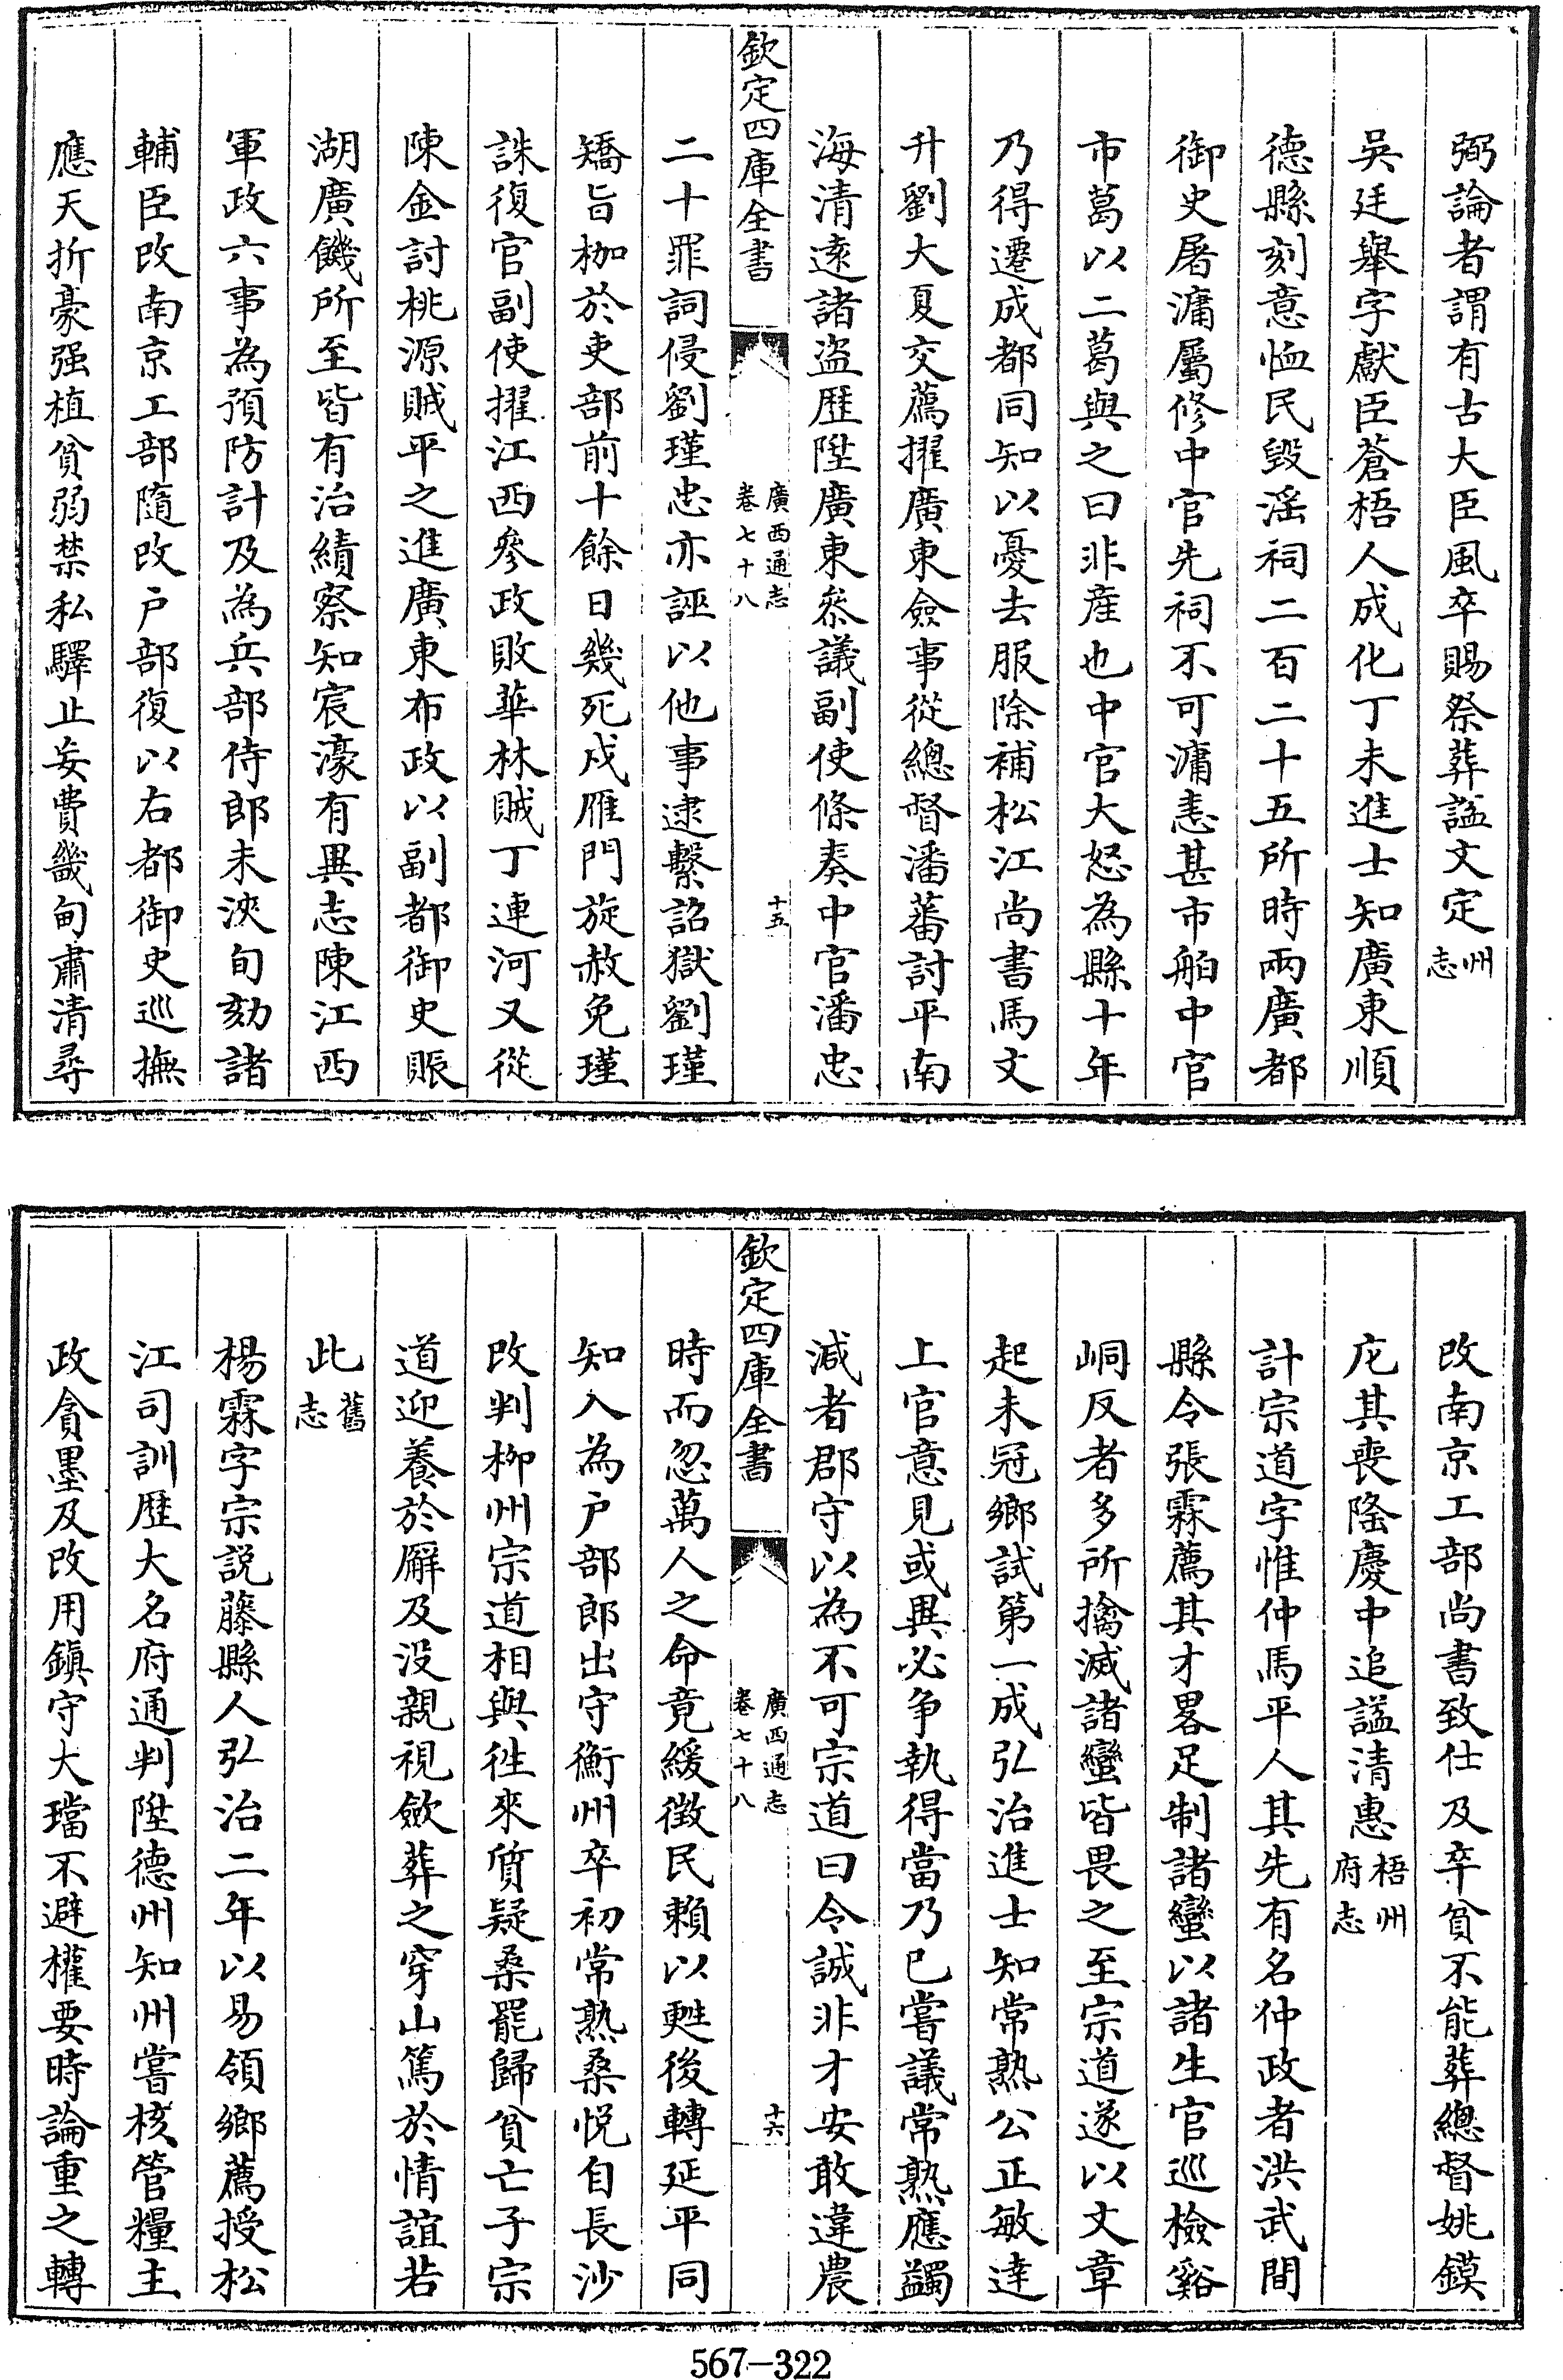 弼論者謂有古大臣風卒賜祭葬諡文定州志
吳廷舉字獻臣蒼梧人成化丁未進士知廣東順
德縣刻意恤民毀淫祠二百二十五所時兩廣都
御史屠滽屬修中官先祠不可滽恚甚市舶中官
市葛以二葛與之曰非産也中官大怒為縣十年
乃得遷成都同知以憂去服除補松江尚書馬文
升劉大夏交薦擢廣東僉事從總督潘蕃討平南
海清遠諸盜歴陞廣東叅議副使條奏中官潘忠
欽定四庫全書 廣西通志 卷七十八 十五
二十罪詞侵劉瑾忠亦誣以他事逮繫詔獄劉瑾
矯旨枷於吏部前十餘日幾死戍雁門旋赦免瑾
誅復官副使擢江西參政敗華林賊丁連河又從
陳金討桃源賊平之進廣東布政以副都御史賑
湖廣饑所至皆有治績察知宸濠有異志陳江西
軍政六事為預防計及為兵部侍郎未浹旬劾諸
輔臣改南京工部隨改户部復以右都御史巡撫
應天折豪强植貧弱禁私驛止妄費畿甸肅清尋
改南京工部尚書致仕及卒貧不能葬總督姚鏌
庀其喪隆慶中追諡清惠梧州府志
計宗道字惟仲馬平人其先有名仲政者洪武間
縣令張霖薦其才畧足制諸蠻以諸生官巡檢谿
峒反者多所擒滅諸蠻皆畏之至宗道遂以文章
起未冠鄉試第一成弘治進士知常熟公正敏達
上官意見或異必争執得當乃已嘗議常熟應蠲
減者郡守以為不可宗道曰令誠非才安敢違農
欽定四庫全書 廣西通志 卷七十八 十六
時而忽萬人之命竟緩徴民賴以甦後轉延平同
知入為户部郎出守衡州卒初常熟桑悦自長沙
改判柳州宗道相與徃來質疑桑罷歸貧亡子宗
道迎養於廨及没親視歛葬之穿山篤於情誼若
此舊志
楊霖字宗説藤縣人弘治二年以易領鄉薦授松
江司訓歴大名府通判陞德州知州嘗核管糧主
政貪墨及改用鎮守大璫不避權要時論重之轉
567—322